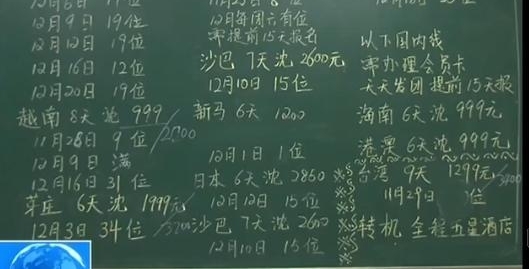 12月9日 19位
12月12日 19位
12月16日 12位
12月20日 19位
越南 8天 沈 999
11月28日 9位 /2800
12月9日 满
12月16日 31位
芽庄 6天 沈 1999元
12月3日 34位 /3200
12月每周六有位
需提前15天报名
沙巴 7天 沈 2600元
12月10日 15位
新马 6天 1200
12月1日 1位
日本 6天 沈 2850
12月12日 15位
沙巴 7天 沈 2600
12月10日 15位
以下国内线
需办理会员卡
天天发团 提前15天报
海南 6天 沈 999元
港澳 6天 沈 999元
台湾 9天 1299元
11月29日 位
转机 全程五星酒店